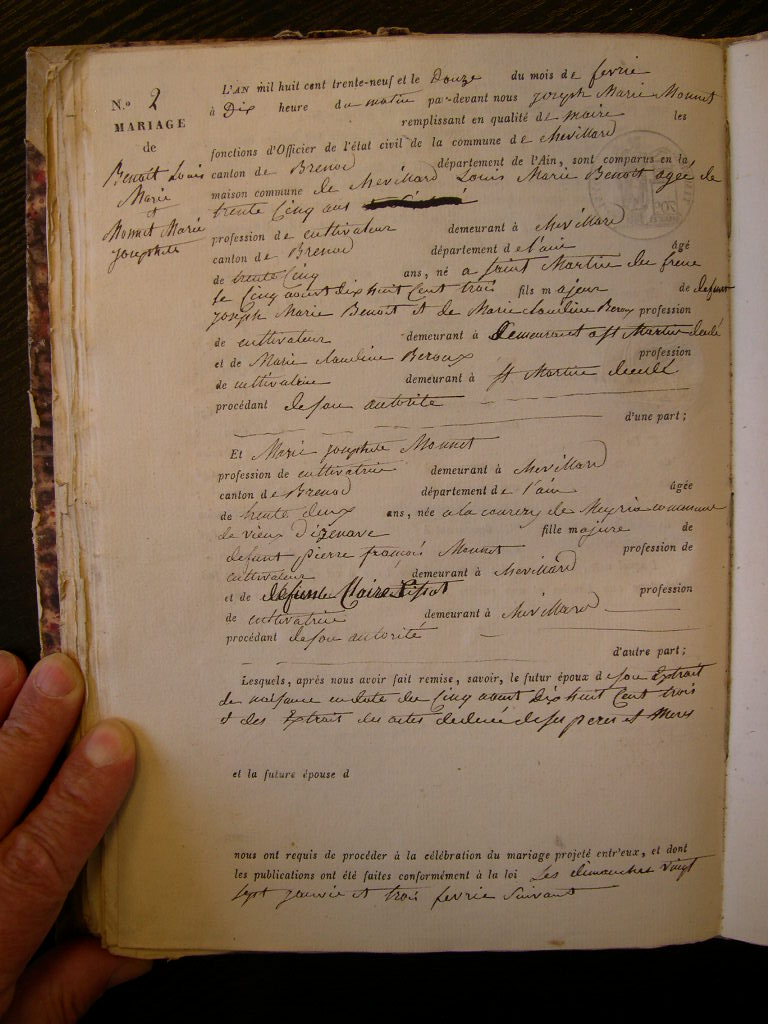 N.º 2
MARIAGE
de
Benoit Louis
Marie
et
Monnet Marie
josephte
L'AN mil huit cent trente-neuf et le Douze du mois de fevrie
à Dix heure du matin par-devant nous joseph Marie Monnet
remplissant en qualité de maire les
fonctions d'Officier de l'état civil de la commune de Chevillard
canton de Brenod département de l'Ain, sont comparus en la
maison commune de Chevillard Louis Marie Benoit agée de
trente Cinq ans
profession de cultivateur demeurant à Chevillard
canton de Brenod département de l'ain âgé
de trente Cinq ans, né a saint Martin du frene
le Cinq aoust dix huit Cent trois fils majeur de defunt
joseph Marie Benoit et de Marie claudine Beroux profession
de cultivateur demeurant à Demeurant a st Martin decédé
et de Marie claudine Beroux profession
de cultivatrice demeurant à st Martin
procédant de son autorité
d'une part ;
Et Marie josephte Monnet
profession de cultivatrice demeurant à Chevillard
canton de Brenod département de l'ain âgée
de trente deux ans, née a la de Meyria commune
de vieux Dizenave fille majeure de
defunt pierre françois Monnet profession de
cultivateur demeurant à Chevillard
et de defunte Claire profession
de cultivatrice demeurant à Chevillard
procédant de son autorité
d'autre part ;
Lesquels, après nous avoir fait remise, savoir, le futur époux de son Extrait
de naissance en date du Cinq aoust Dix huit Cent trois
et des Extrait des actes de decé de ses peres et Meres
et la future épouse d
nous ont requis de procéder à la célébration du mariage projeté entr'eux, et dont
les publications ont été faites conformément à la loi les dimanches vingt
sept janvie et trois fevrie suivant